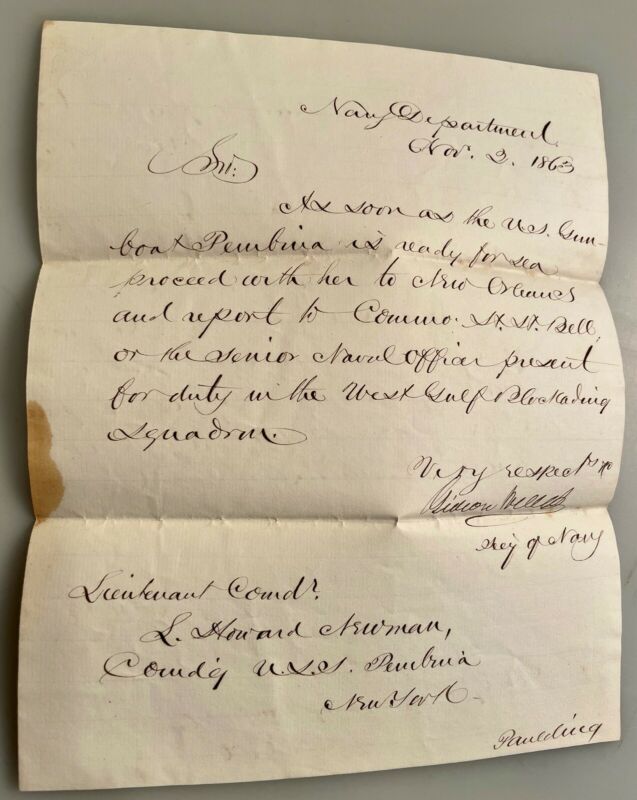 Navy Department,
Nov. 2. 1863
Sir:
As soon as the U.S. Gun-
boat Pembina is ready for sea
proceed with her to New Orleans
and report to Commo. H. H. Bell,
or the senior Naval Officer present
for duty in the West Gulf Blockading
Squadron.
Very respect'y &c
Gideon Welles
Sec'y of Navy
Lieutenant Comdr.
L. Howard Newman,
Comd'g U.S.S. Pembina
New York
Paulding